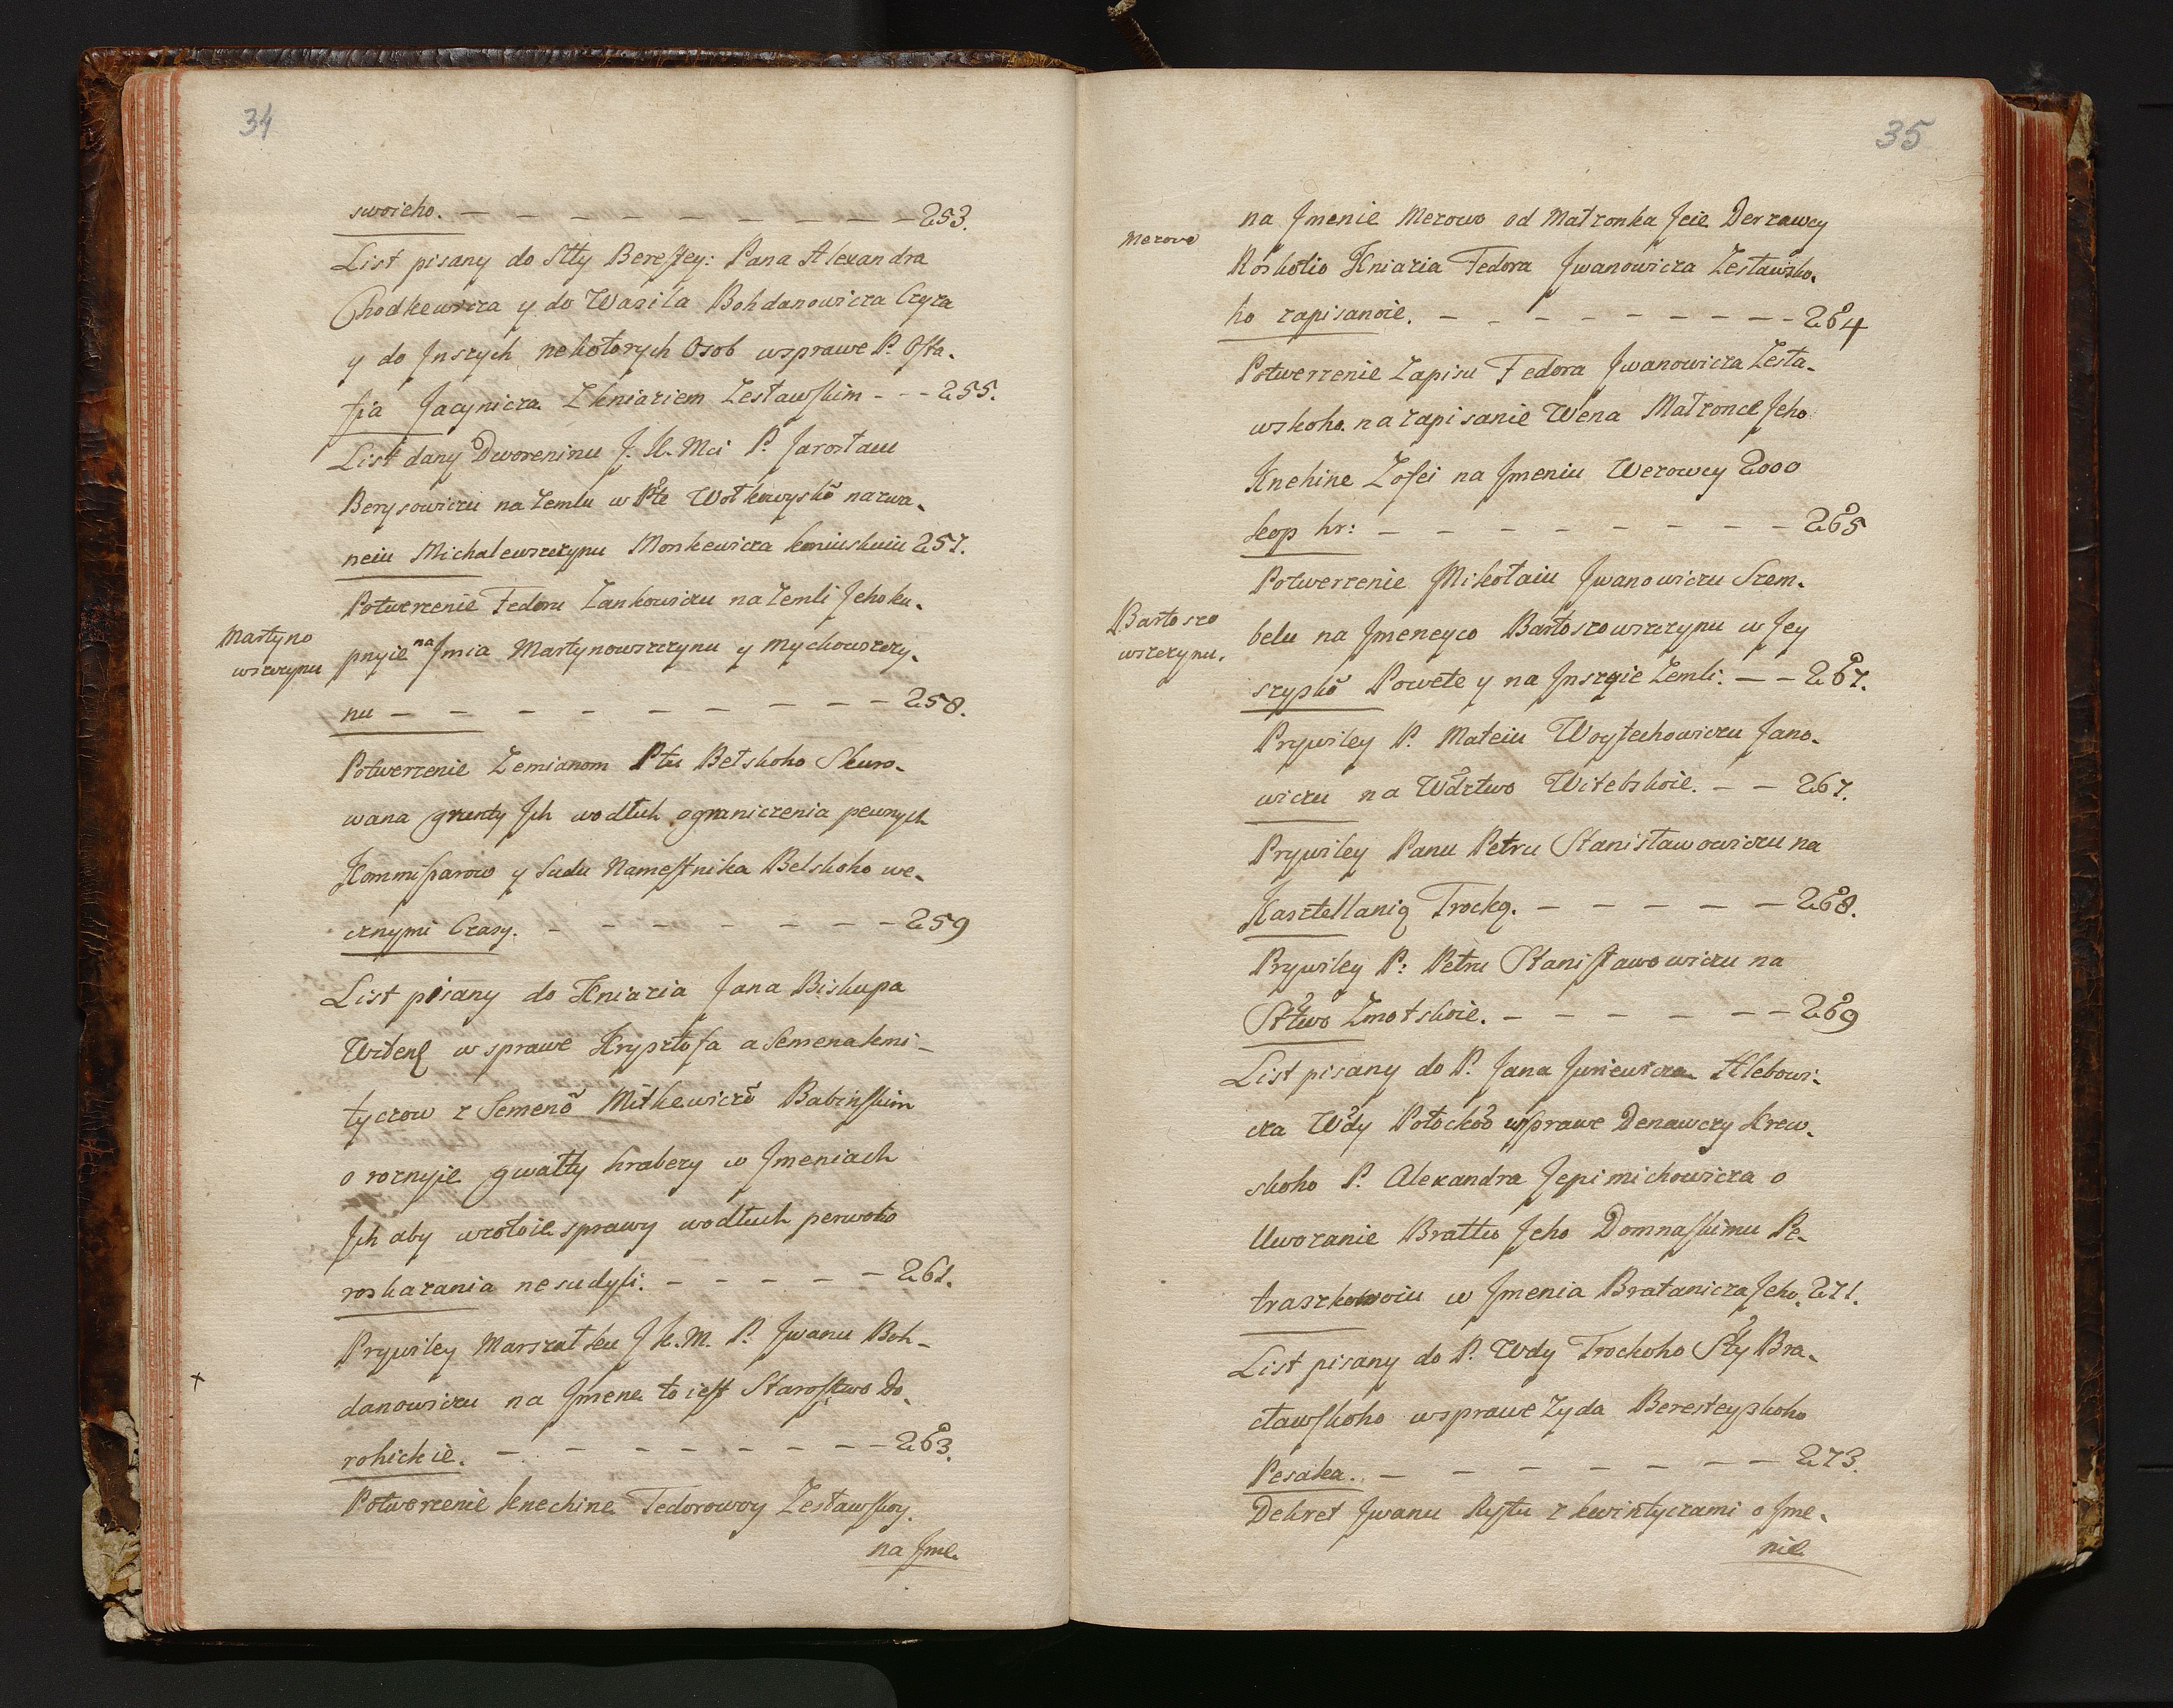 34
swoieho. — — — — — — — — — 253.
List pisany do Stty Berestey: Pana Alexandra
Chodkewicza y do Wasila Bohdanowicza Czyza
y do Jnszych nekotorych Osob wsprawe P. Osta-
fia Jacynicza Zkniaziem Zesławskim - - - 255.
List dany Dworeninu J. K. Mci P. Jarosławu
Berysowiczu na Zemlu w Pte Wołkowysko nazwa-
neiu Michalewszczynu Monkewicza koniuskuiu 257.
Potwerzenie Fedoru Zankowiczu na Zemli Jeho ku-
pnyie na Jmia Martynowszczynu y Mychowszczy-
nu — — — — — — — — — 258.
Martyno
wszczynu
Potwerzenie Zemianom Ptu Belskoho Skuro-
wana grunty Jch wodłuh ograniczenia pewnych
Kommissarow y Sudu Namestnika Belskoho we-
cznymi Czasy. — — — — — — — 259
List pisany do Kniazia Jana Biskupa
Wilens w sprawe Krysztofa a Semena kmi-
tyczow z Semeno Mitkewiczo Babinskim
o roznyie gwałty hrabezy w Jmeniach
Jch aby wzołoie sprawy wodłuh perwoho
roskazania nesudyli. — — — — — 261.
Prywiley Marszałku J K. M. P. Jwanu Boh-
danowiczu na Jmene to iest Starostwo Do-
rohickie. — — — — — — — 263.
Potwerzenie knechine Fedorowoy Zesławskoy.
na Jme-
35
na Jmenie Merowo od Małzonka Jeie Derzawcy
Merowo
Roskolio Kniazia Fedora Jwanowicza Zesławsko-
ho zapisanoie. — — — — — — — — 264
Potwerzenie Zapisu Fedora Jwanowicza Zesła-
wskoho. na zapisanie Wena Małzonce Jeho
Knehine Zofei na Jmeniu Werowcy 2000
kop hr: — — — — — — — — 265
Potwerzenie Mikołaiu Jwanowiczu Szem-
Bartoszo
wszczynu.
belu na Jmeneyco Bartoszowszczynu w Jey
szysko Powete y na Jnszyie Zemli. — — 267.
Prywiley P. Mateiu Woytechowiczu Jano-
wiczu na Wdztwo Witebskoie. — — 267.
Prywiley Panu Petru Stanisławowiczu na
Kasztellanią Trocką. — — — — — 268.
Prywiley P: Petru Stanisławowiczu na
Sttwo Zmotskoie. — — — — — — 269
List pisany do P. Jana Juriewicza Hlebowi-
cza Wdy Połocko wsprawe Derzawczy Krew-
skoho P. Alexandra Jepimichowicza o
Uwozanie Brattu Jeho Domnaskimu Pe-
traszkowoiu w Jmenia Bratanicza Jeho. 271.
List pisany do P. Wdy Trockoho Stty Bra-
cławskoho wsprawe Zyda Beresteyskoho
Pesaka. — — — — — — — 273.
Dekret Jwanu Rystu z kwintyczami o Jme-
nie